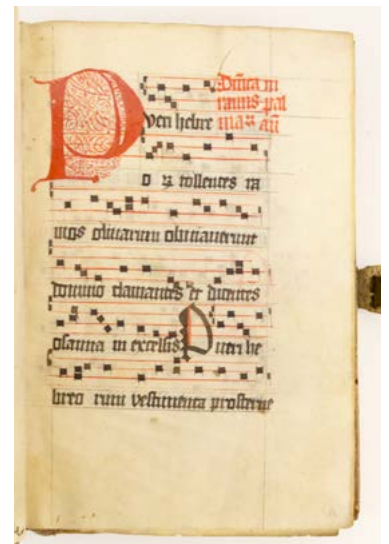 Dn̄ica in
ramis pal
maꝝ an̄
Pueri hebre
o ꝝ tollentes ra
mos oliuarum obuiauerunt
domino clamantes et dicentes
osanna in excelsis Pueri he
breo rum vestimenta prosterne